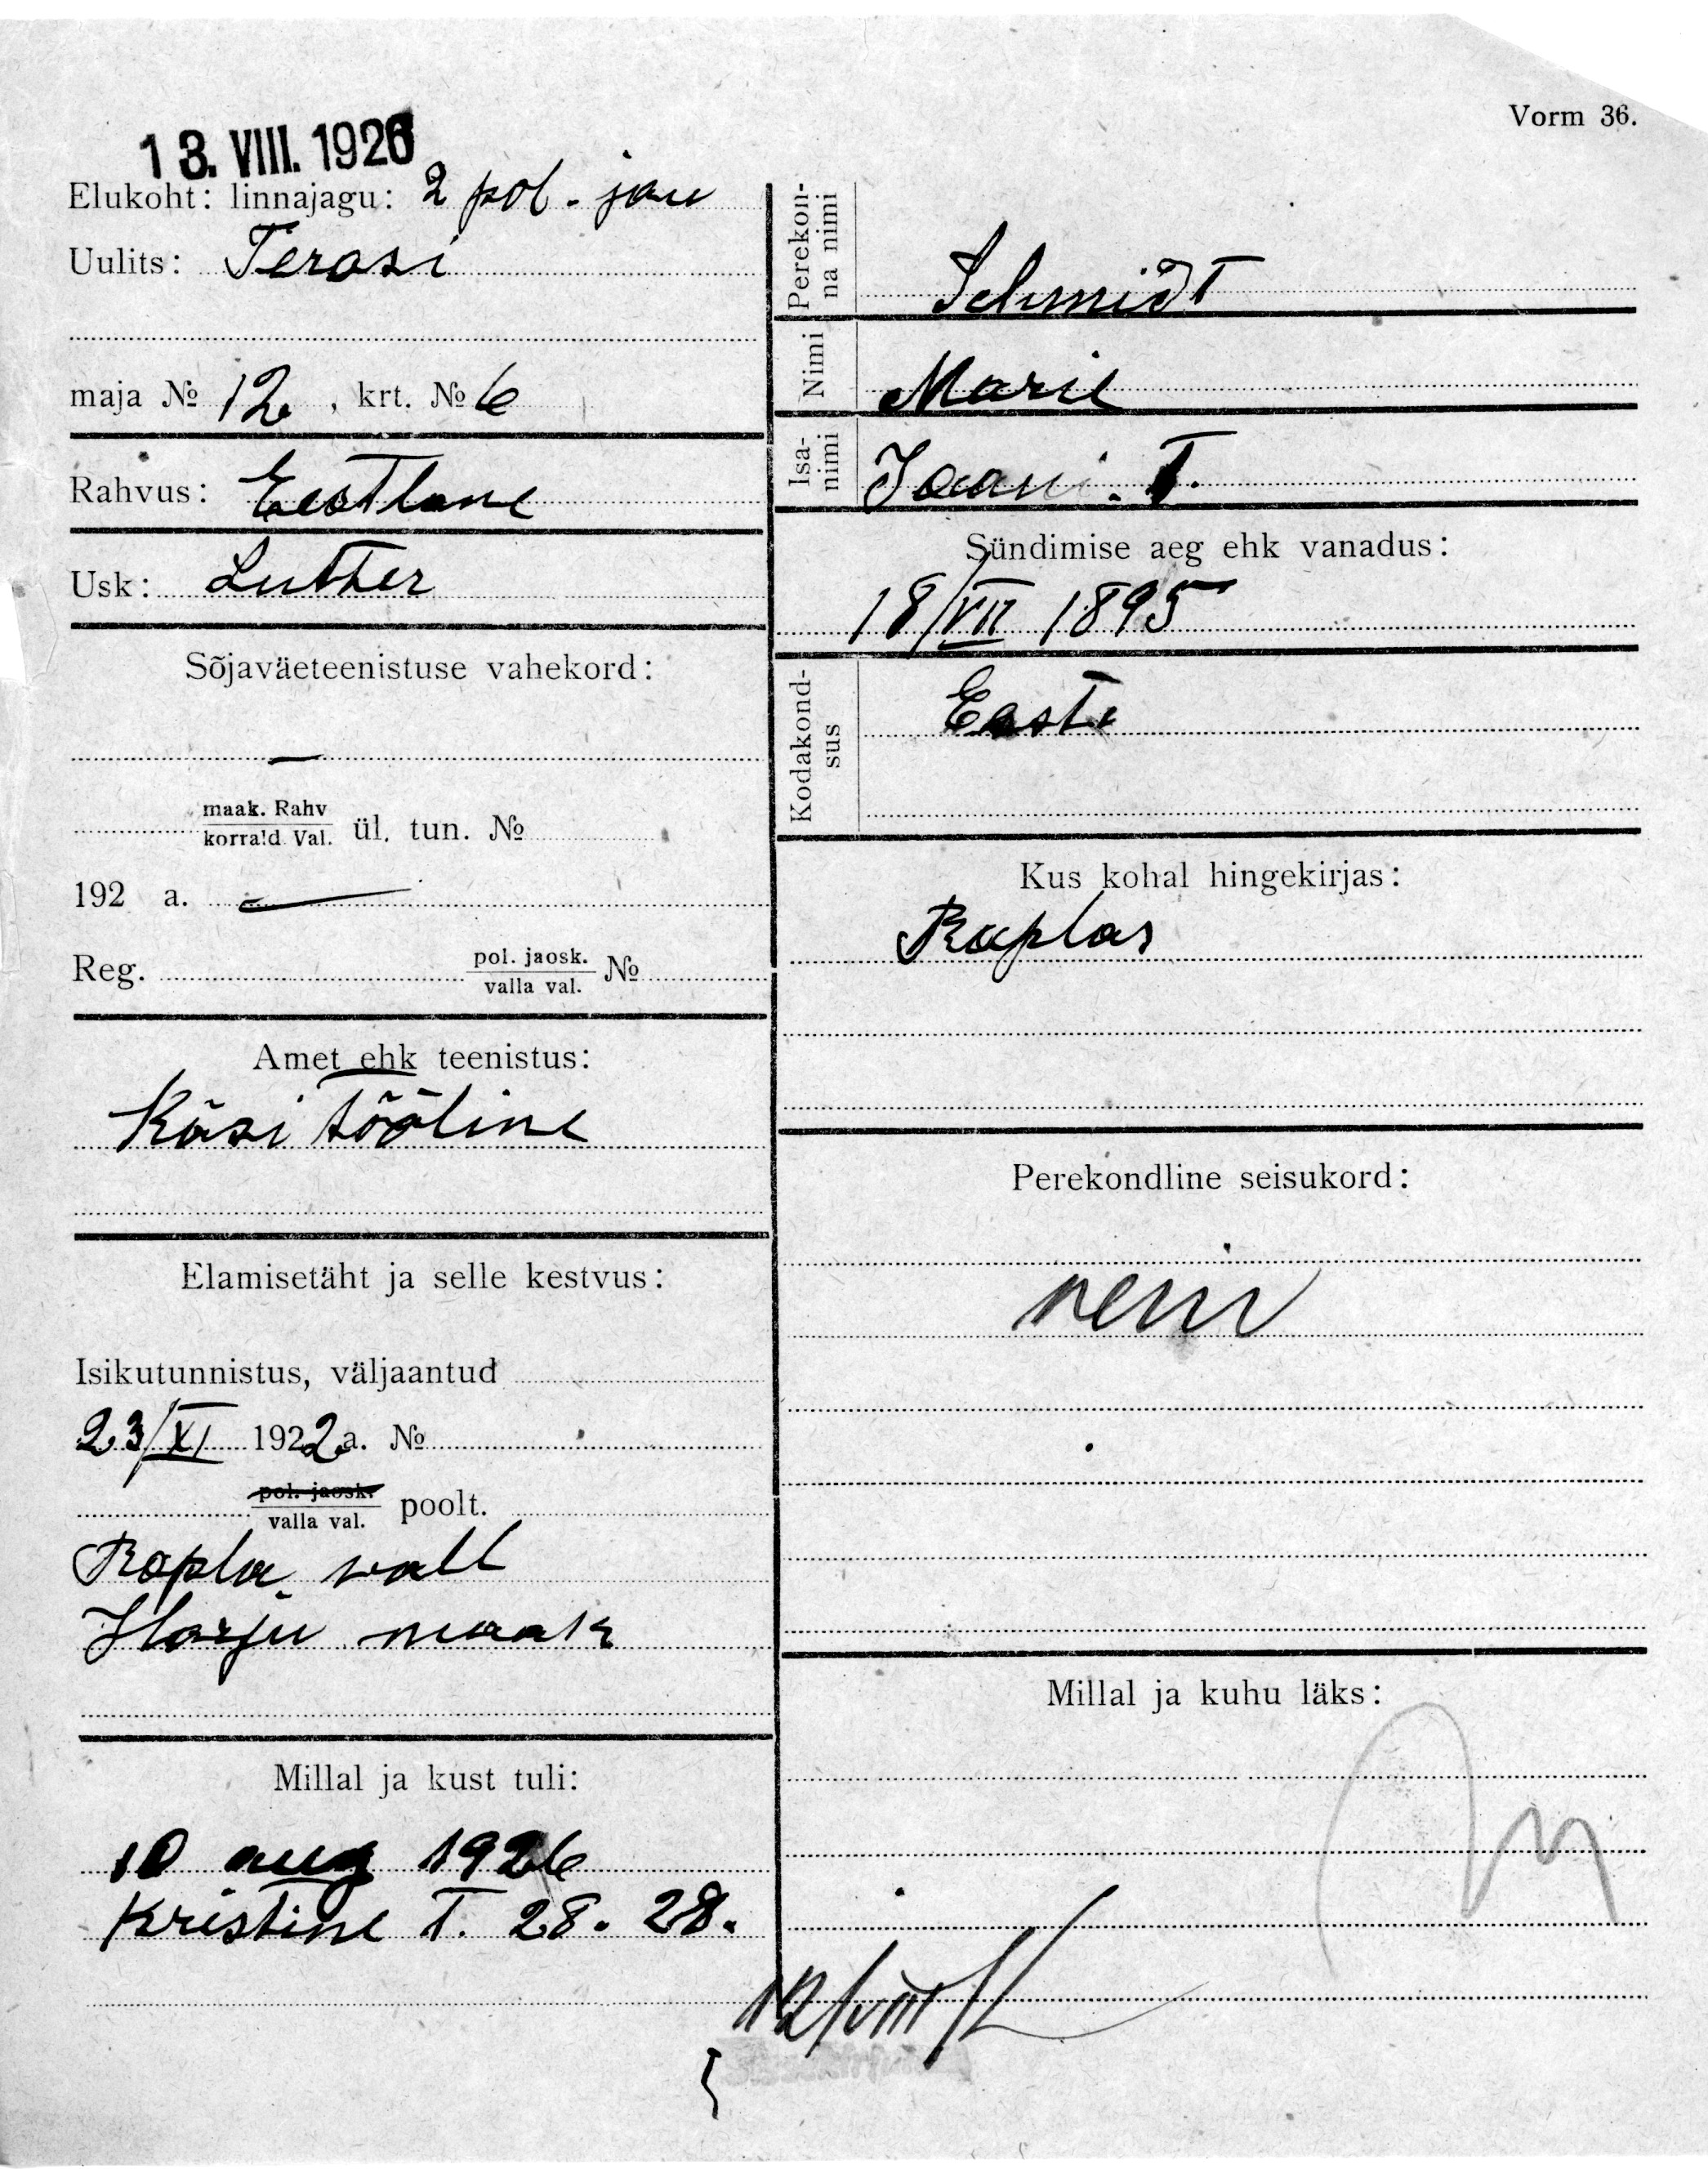 Vorm 36.
13. VIII. 1926
Elukoht: linnajagu: 2 pol. jau
Uulits: Terasi
maja № 12, krt. № 6
Rahvus: Eestlane
Usk: Luther
Sõjaväeteenistuse vahekord:
—
maak. Rahv
korrald. Val. ül. tun. №
192 a. —
Reg. pol. jaosk. №
valla val.
Amet ehk teenistus:
Käsi tööline
Elamisetäht ja selle kestvus:
Isikutunnistus, väljaantud
23/XI 1922 a. №
pol. jaosk. poolt.
valla val.
Rapla wall
Harju maak
Millal ja kust tuli:
10 aug 1926
Kristine T. 28. 28.
Perekon-
na nimi
Schmidt
Nimi
Marie
Isa-
nimi
Jaani. T.
Sündimise aeg ehk vanadus:
18/VII 1895
Kodakond-
sus
Eesti
Kus kohal hingekirjas:
Raplas
Perekondline seisukord:
neiu
Millal ja kuhu läks:
12/VIII